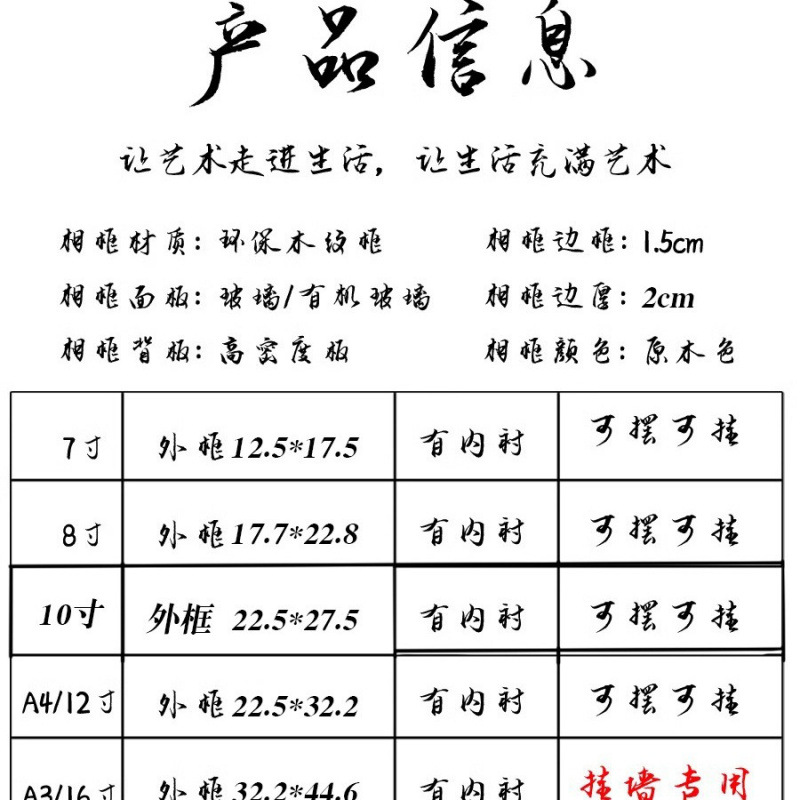 产品信息
让艺术走进生活，让生活充满艺术
相框材质：环保木纹框 相框边框：1.5cm
相框面板：玻璃/有机玻璃 相框边厚：2cm
相框背板：高密度板 相框颜色：原木色
7寸 外框12.5*17.5 有内衬 可摆可挂
8寸 外框17.7*22.8 有内衬 可摆可挂
10寸 外框 22.5*27.5 有内衬 可摆可挂
A4/12寸 外框22.5*32.2 有内衬 可摆可挂
A3/16寸 外框32.2*44.6 有内衬 挂墙专用